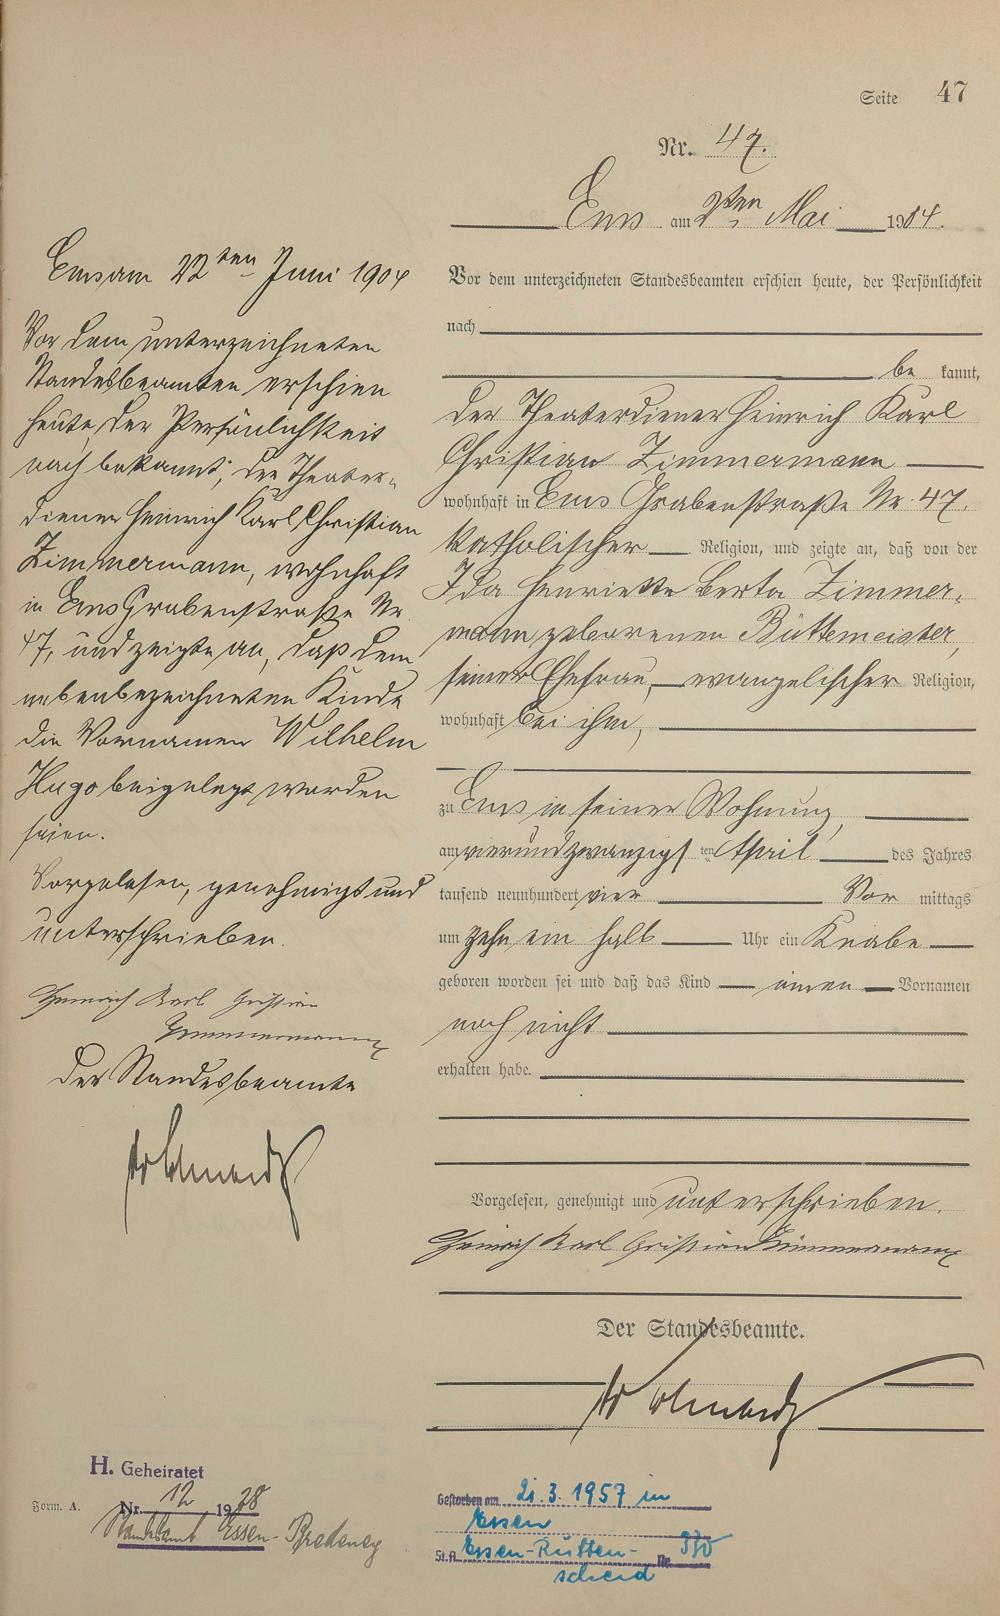 Seite 47
Nr. 47.
Ems am 2ten Mai 1904.
Vor dem unterzeichneten Standesbeamten erschien heute, der Persönlichkeit
nach
be kannt,
der Theaterdiener Heinrich Karl
Christian Zimmermann
wohnhaft in Ems Grabenstraße Nr. 47,
katholischer Religion, und zeigte an, daß von der
Ida Henriette Berta Zimmer-
mann geborenen Büttemeister,
seiner Ehefrau, evangelischer Religion,
wohnhaft bei ihm,
zu Ems in seiner Wohnung,
am vierundzwanzigsten April des Jahres
tausend neunhundert vier Vor mittags
um zehn ein halb Uhr ein Knabe
geboren worden sei und daß das Kind einen Vornamen
noch nicht
erhalten habe.
Vorgelesen, genehmigt und unterschrieben.
Heinrich Karl Christian Zimmermann
Der Standesbeamte.
Ems am 22ten Juni 1904
Vor dem unterzeichneten
Standesbeamten erschien
heute, der Persönlichkeit
nach bekannt, der Theater-
diener Heinrich Karl Christian
Zimmermann, wohnhaft
in Ems Grabenstraße Nr.
47, und zeigte an, daß dem
nebenbezeichneten Kinde
die Vornamen Wilhelm
Hugo beigelegt worden
seien.
Vorgelesen, genehmigt und
unterschrieben.
Heinrich Karl Christian
Zimmermann
Der Standesbeamte
H. Geheiratet
Form. A.
Nr. 12 1928
Standesamt Essen-Bredeney
Gestorben am 21.3.1957 in
Essen
St.A. Essen-Rütten-
scheid Nr. 330